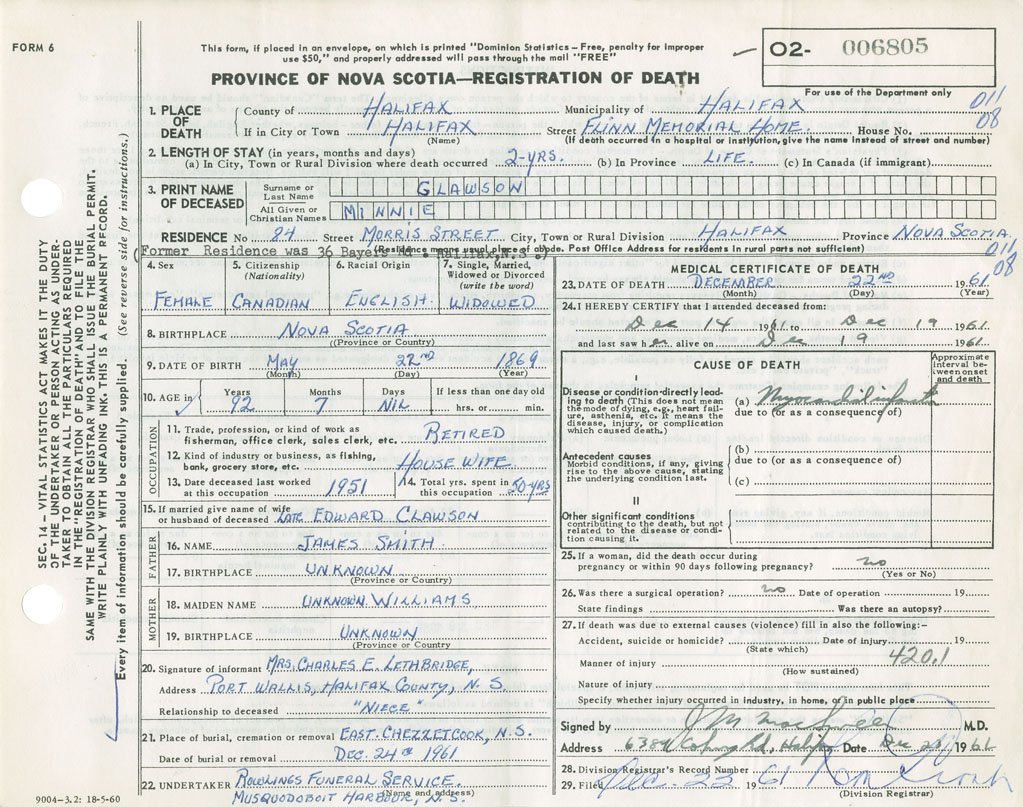 FORM 6
This form, if placed in an envelope, on which is printed "Dominion Statistics – Free, penalty for improper
use $50," and properly addressed will pass through the mail "FREE"
02- 006805
PROVINCE OF NOVA SCOTIA—REGISTRATION OF DEATH
For use of the Department only
011
08
1. PLACE OF DEATH
County of HALIFAX Municipality of HALIFAX
If in City or Town HALIFAX Street FLINN MEMORIAL HOME. House No.
(Name) (If death occurred in a hospital or institution, give the name instead of street and number)
2. LENGTH OF STAY (in years, months and days)
(a) In City, Town or Rural Division where death occurred 2-YRS. (b) In Province LIFE. (c) In Canada (if immigrant)
3. PRINT NAME OF DECEASED
Surname or Last Name GLAWSON
All Given or Christian Names MINNIE
RESIDENCE No 84 Street MORRIS STREET City, Town or Rural Division HALIFAX Province NOVA SCOTIA
(Residence means usual place of abode. Post Office Address for residents in rural parts not sufficient)
(Former Residence was 36 Bayers Rd. Halifax, N.S.)
011
08
4. Sex FEMALE
5. Citizenship (Nationality) CANADIAN
6. Racial Origin ENGLISH.
7. Single, Married, Widowed or Divorced (write the word) WIDOWED
8. BIRTHPLACE NOVA SCOTIA
(Province or Country)
9. DATE OF BIRTH MAY 22ND 1869
(Month) (Day) (Year)
10. AGE in Years 92 Months 7 Days NIL If less than one day old hrs. or min.
OCCUPATION
11. Trade, profession, or kind of work as
fisherman, office clerk, sales clerk, etc. RETIRED
12. Kind of industry or business, as fishing,
bank, grocery store, etc. HOUSE WIFE.
13. Date deceased last worked
at this occupation 1951
14. Total yrs. spent in
this occupation 50-YRS
15. If married give name of wife
or husband of deceased LATE EDWARD CLAWSON
FATHER
16. NAME JAMES SMITH.
17. BIRTHPLACE UNKNOWN
(Province or Country)
MOTHER
18. MAIDEN NAME UNKNOWN WILLIAMS
19. BIRTHPLACE UNKNOWN
(Province or Country
20. Signature of informant MRS. CHARLES E. LETHBRIDGE,
Address PORT WALLIS, HALIFAX COUNTY, N.S.
Relationship to deceased "NIECE"
21. Place of burial, cremation or removal EAST CHEZZETCOOK, N.S.
Date of burial or removal DEC. 24th 1961
22. UNDERTAKER ROWLINGS FUNERAL SERVICE.
(Name and address)
MUSQUODOBOIT HARBOUR, N.S.
MEDICAL CERTIFICATE OF DEATH
23. DATE OF DEATH DECEMBER 22ND 1961
(Month) (Day) (Year)
24. I HEREBY CERTIFY that I attended deceased from:
Dec 14 1961. to Dec 19 1961.
and last saw her alive on Dec 19 1961.
CAUSE OF DEATH
Approximate interval between onset and death
I
Disease or condition directly leading to death (This does not mean
the mode of dying, e.g., heart failure, asthenia, etc. It means the
disease, injury, or complication
which caused death.)
(a) Myocardial infarct
due to (or as a consequence of)
Antecedent causes
Morbid conditions, if any, giving
rise to the above cause, stating
the underlying condition last.
(b)
due to (or as a consequence of)
(c)
II
Other significant conditions
contributing to the death, but not
related to the disease or condition causing it.
25. If a woman, did the death occur during
pregnancy or within 90 days following pregnancy? no
(Yes or No)
26. Was there a surgical operation? no Date of operation 19
State findings Was there an autopsy?
27. If death was due to external causes (violence) fill in also the following:—
Accident, suicide or homicide? Date of injury 19
(State which)
420.1
Manner of injury
(How sustained)
Nature of injury
Specify whether injury occurred in industry, in home, or in public place
Signed by M.D.
Address Halifax Date Dec 1961
28. Division Registrar's Record Number
29. Filed Dec. 22 1961
(Division Registrar)
9004-3.2: 18-5-60
SEC. 14 — VITAL STATISTICS ACT MAKES IT THE DUTY
OF THE UNDERTAKER OR PERSON ACTING AS UNDER-
TAKER TO OBTAIN ALL THE PARTICULARS REQUIRED
IN THE "REGISTRATION OF DEATH" AND TO FILE THE
SAME WITH THE DIVISION REGISTRAR WHO SHALL ISSUE THE BURIAL PERMIT.
WRITE PLAINLY WITH UNFADING INK. THIS IS A PERMANENT RECORD.
Every item of information should be carefully supplied. (See reverse side for instructions.)